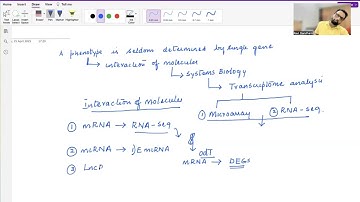 File Home Insert Draw View Help
A phenotype is seldom determined by single gene
↳ interaction of molecules
↳ Systems Biology
↳ Transcriptome analysis
Interaction of molecules
① Microarray ② RNA-seq
① mRNA → RNA-seq
② miRNA → DEmiRNA
odT
mRNA → DEGs
③ LncR